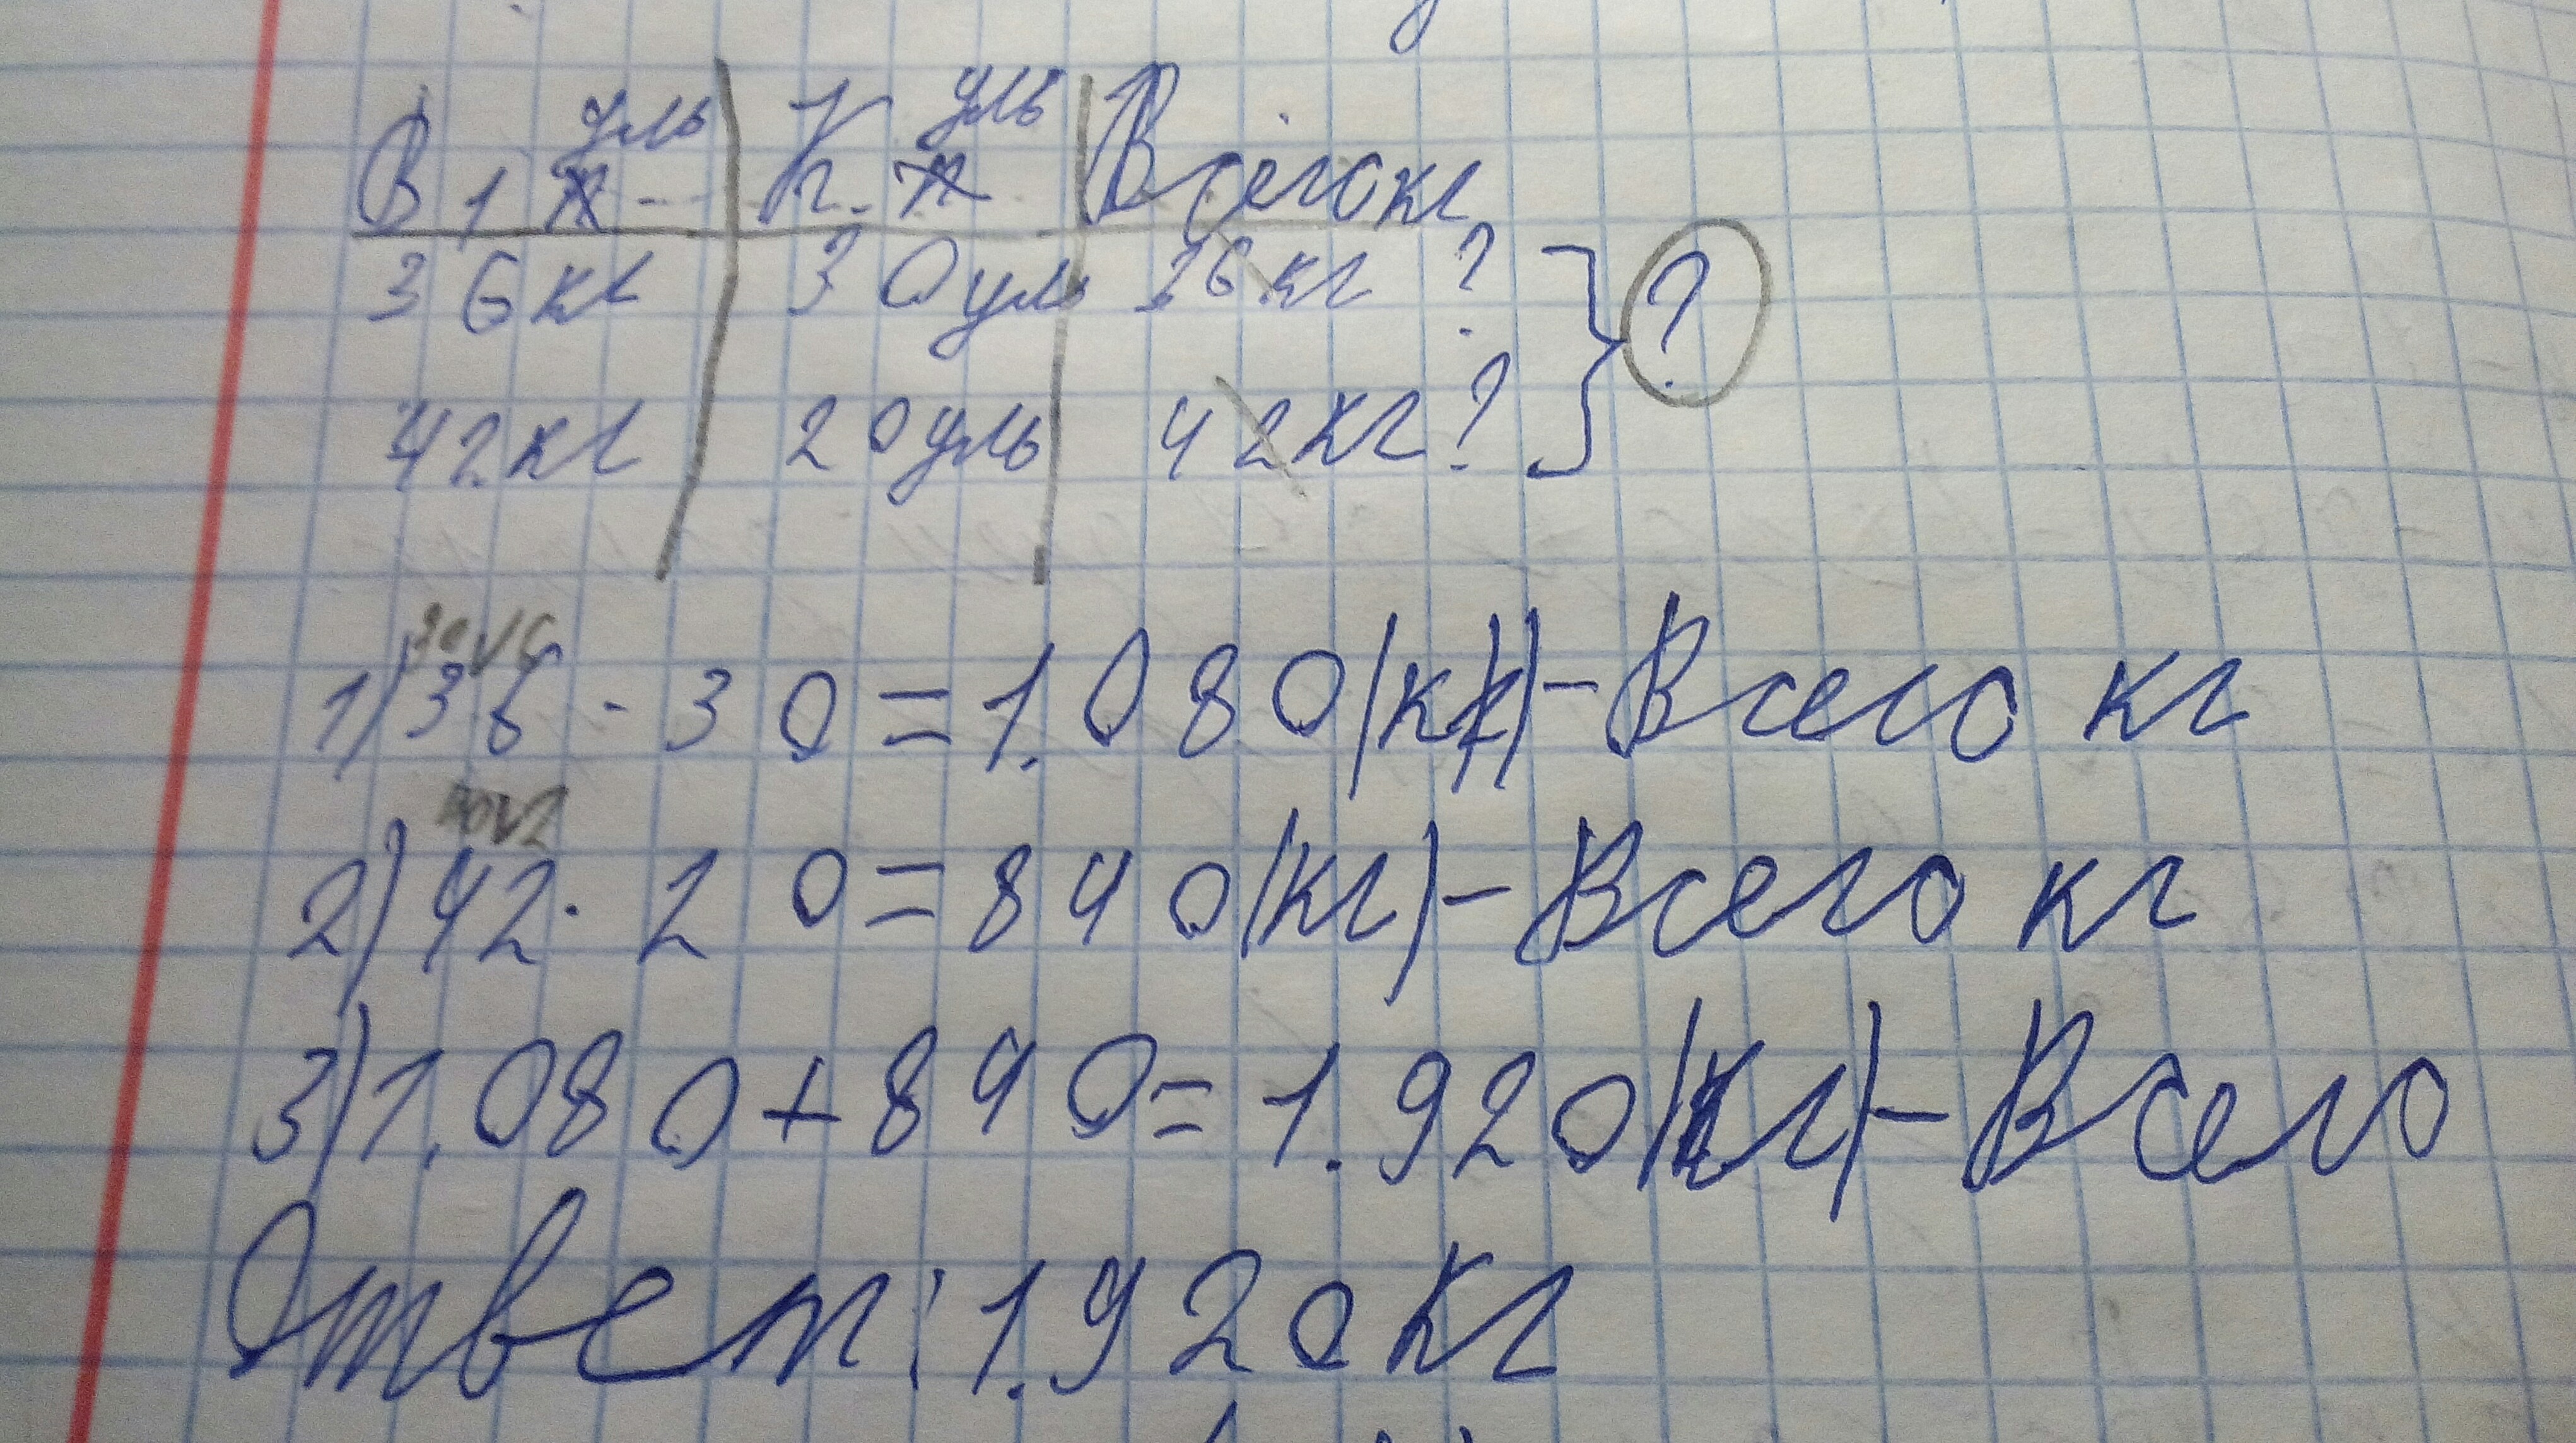 В 1 уль К. уль Всего кг
36 кг 30 уль 36 кг ? ?
42 кг 20 уль 42 кг ?
1) 36 · 30 = 1.080 (кг) - Всего кг
2) 42 · 20 = 840 (кг) - Всего кг
3) 1.080 + 840 = 1.920 (кг) - Всего
Ответ: 1.920 кг